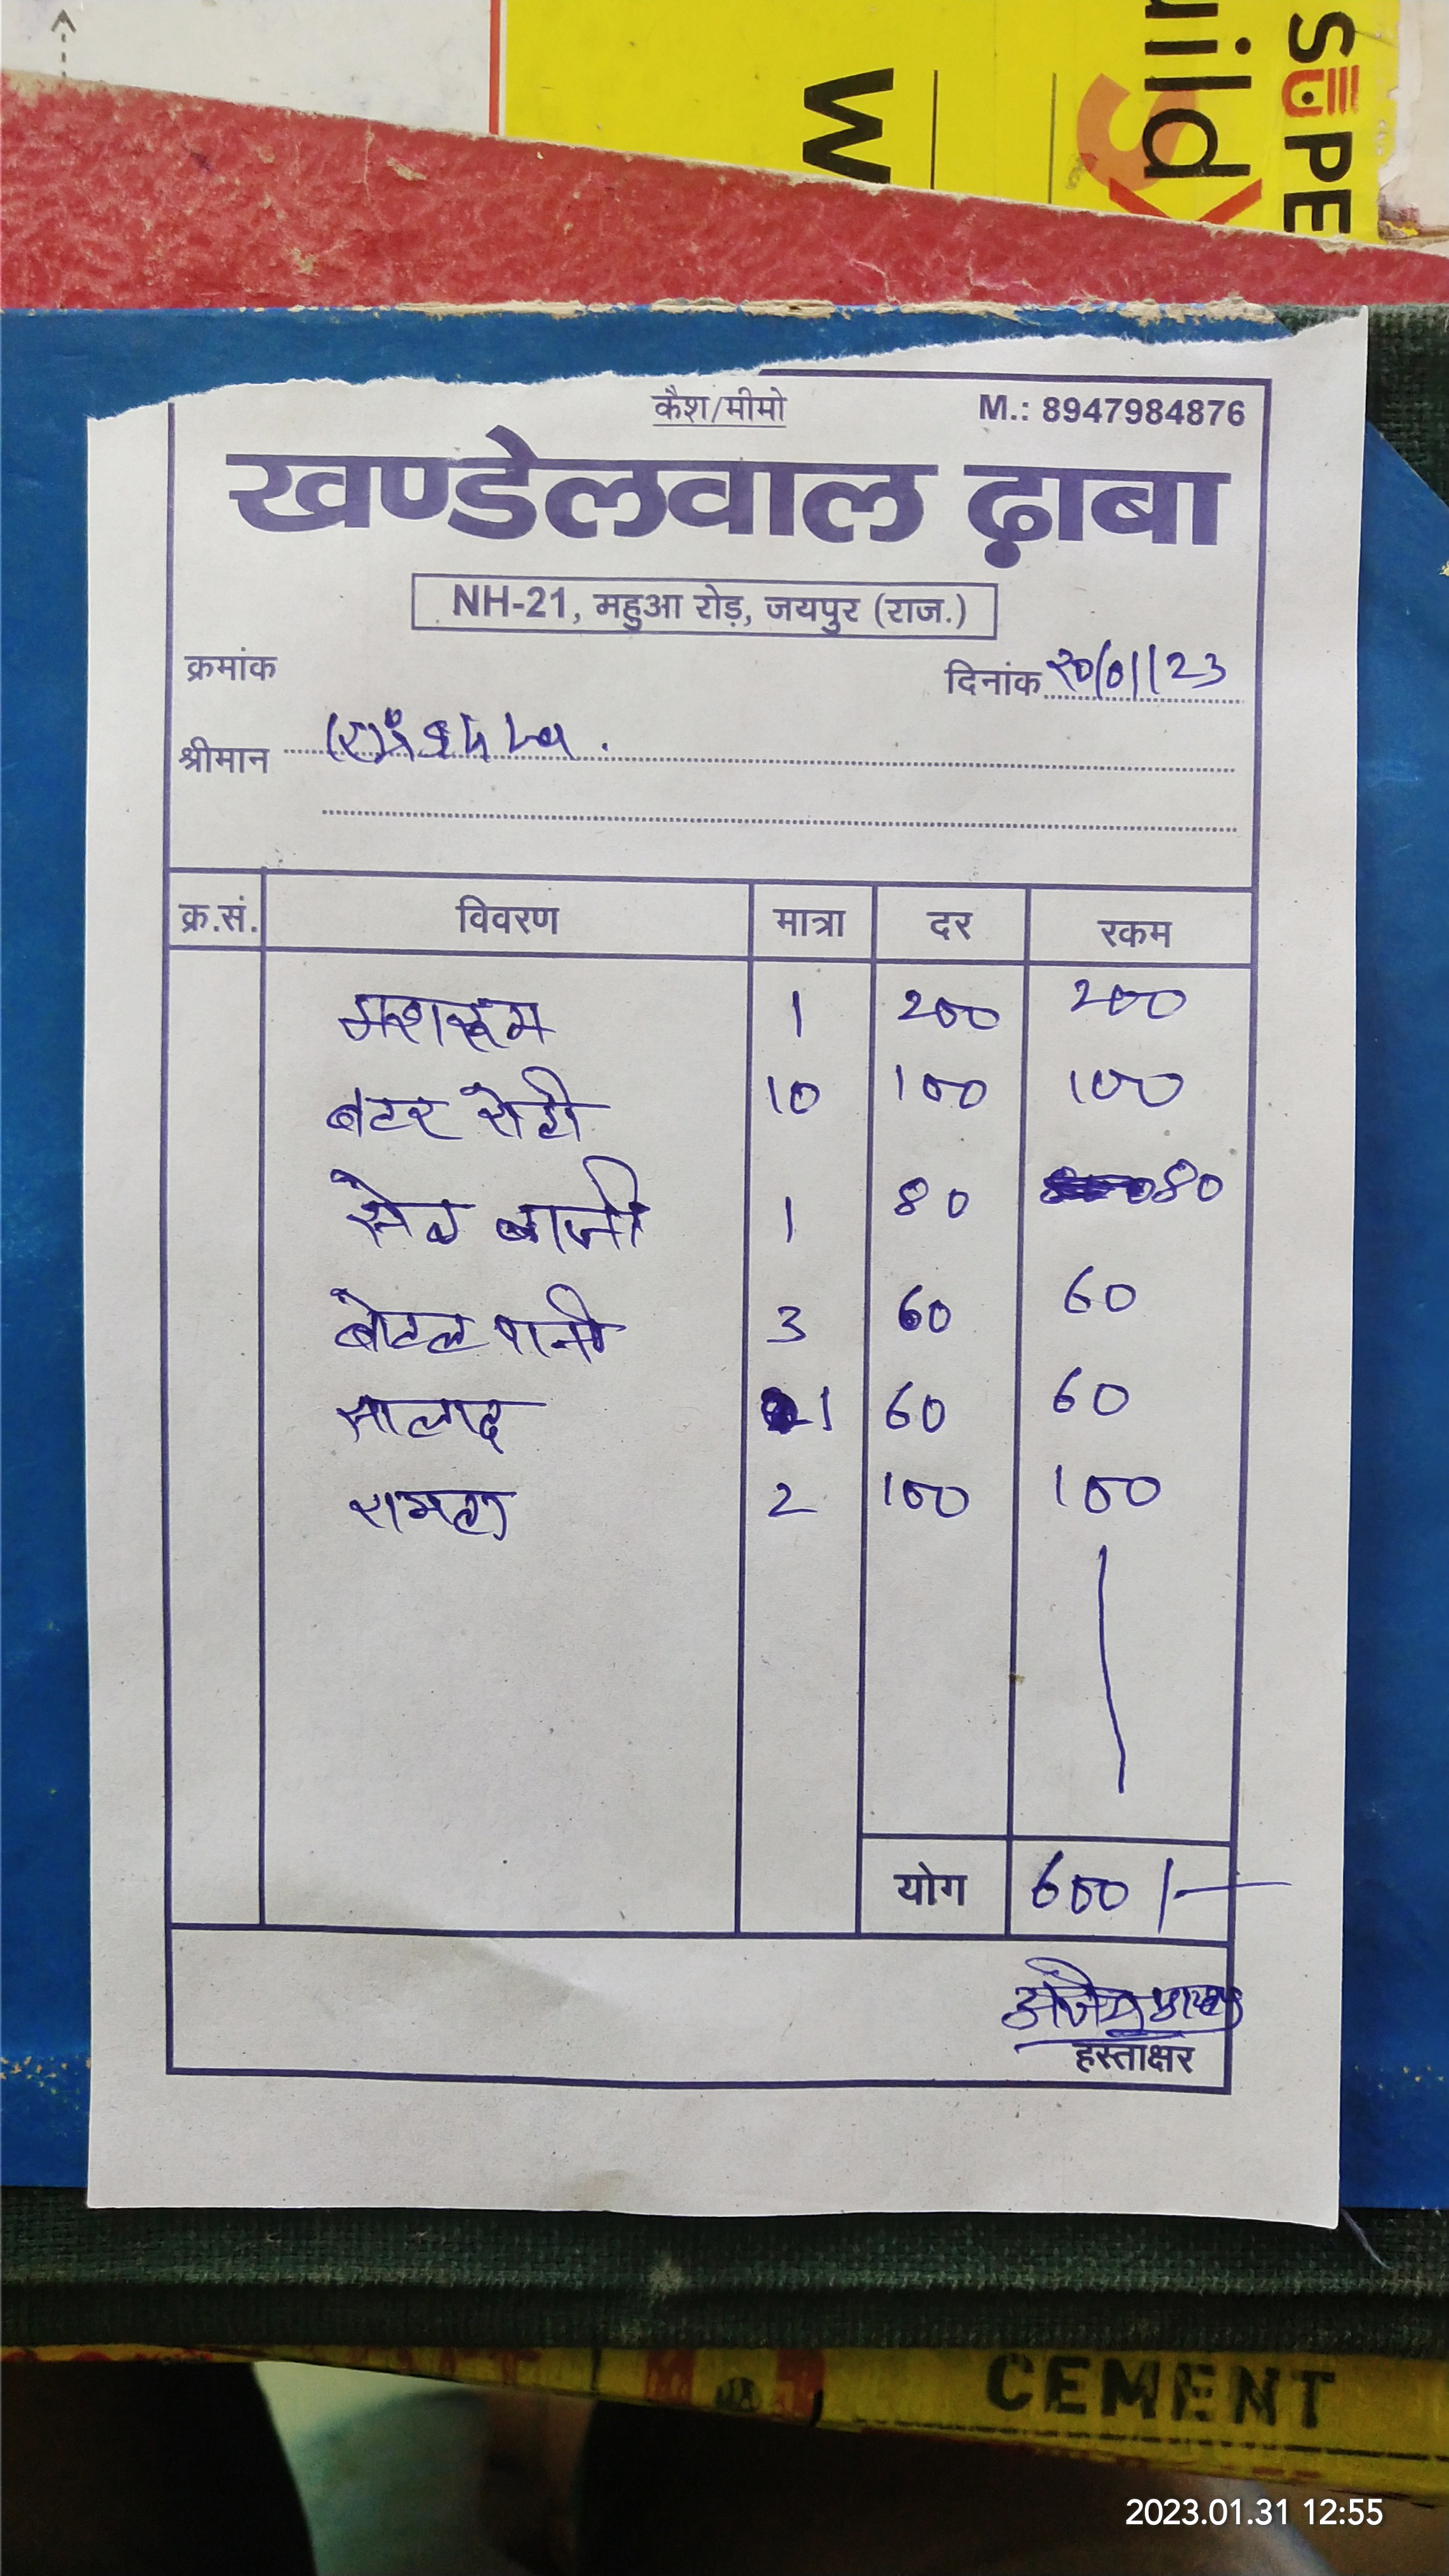 SUPE
uild
W
कैश/मीमो M.: 8947984876
खण्डेलवाल ढ़ाबा
NH-21, महुआ रोड़, जयपुर (राज.)
क्रमांक दिनांक 20/01/23
श्रीमान
क्र.सं. विवरण मात्रा दर रकम
मशरूम 1 200 200
बटर रोटी 10 100 100
सेव बाजी 1 80 80
बोटल पानी 3 60 60
सालाद 1 60 60
2 100 100
योग 600/-
हस्ताक्षर
CEMENT
2023.01.31 12:55